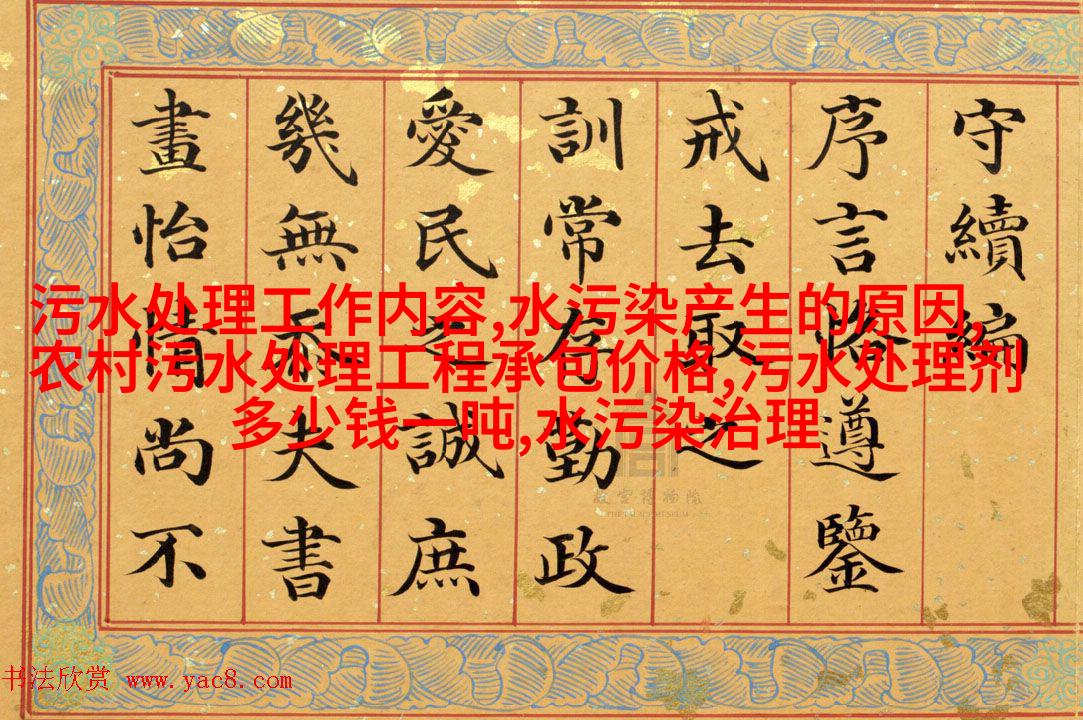 守續編
序言恪遵鑒
戒去取之
訓常存勤政
愛民之誠庶
幾無夫書
畫怡情尚不
污水处理工作内容,水污染产生的原因,
农村污水处理工程承包价格,污水处理剂
多少钱一吨,水污染治理
故宫博物院
THE PALACE MUSEUM
书法欣赏 www.yac8.com